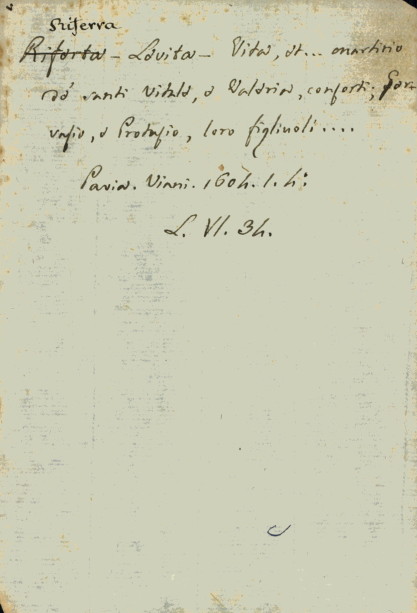 Riserra
Riserta - Levita - Vita, et... martirio
de' santi Vitale, e Valeria, conforti; Ger-
vasio, e Protasio, loro figliuoli....
Pavia. Viani. 1604. 1. 4:
L. VI. 34.